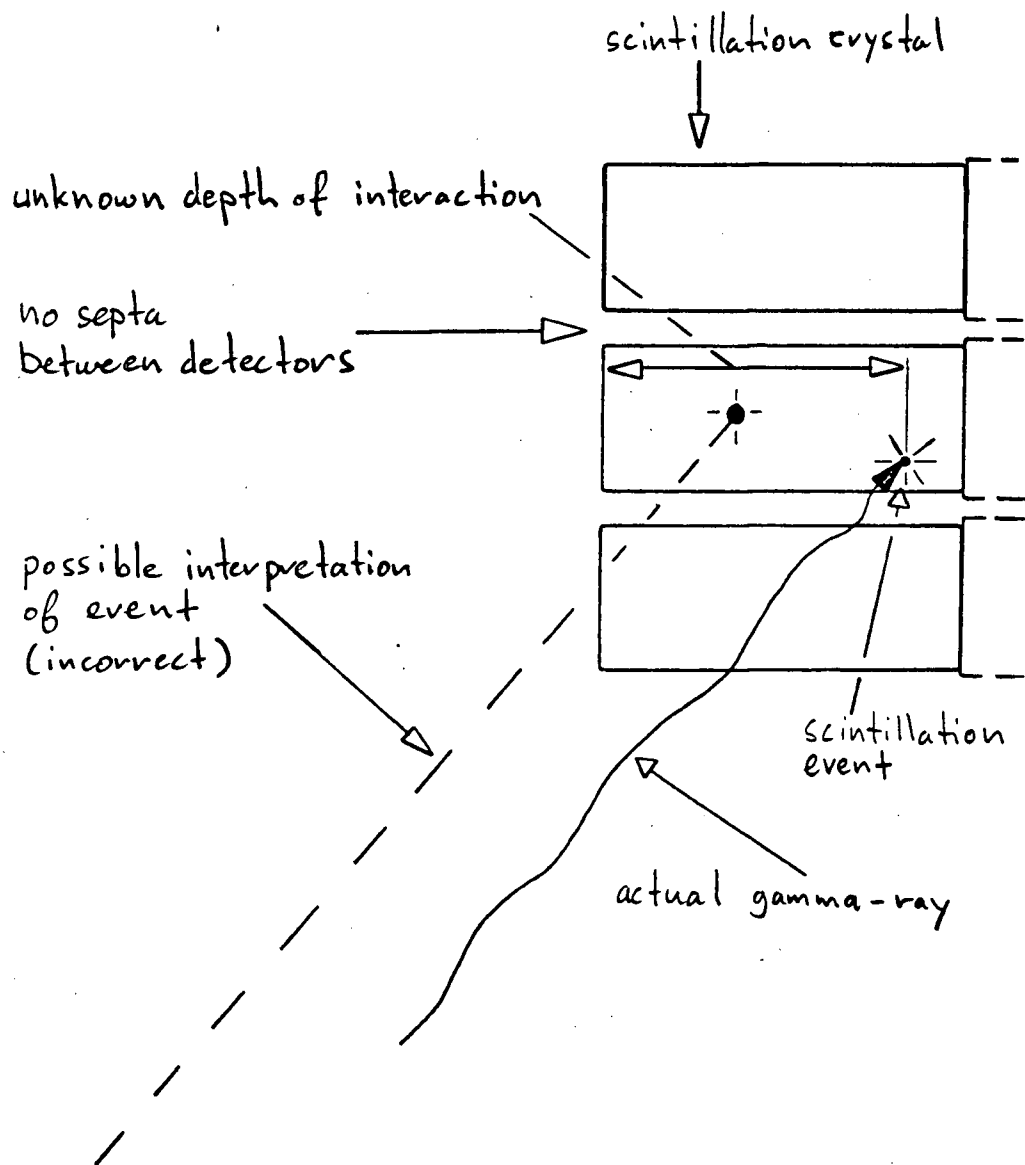 scintillation crystal
unknown depth of interaction
no septa
between detectors
possible interpretation
of event
(incorrect)
scintillation
event
actual gamma-ray